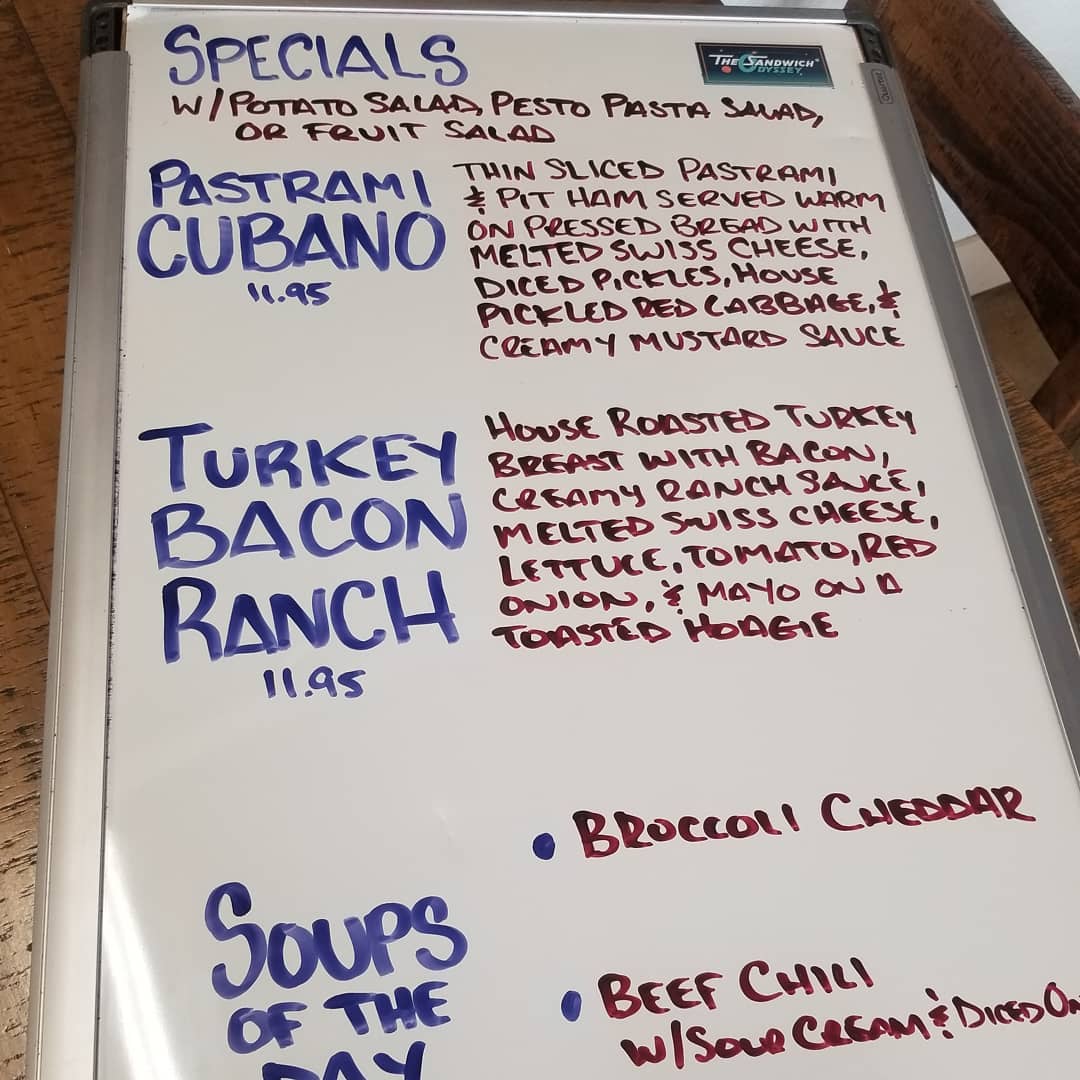 SPECIALS
THE SANDWICH
ODYSSEY
W/POTATO SALAD, PESTO PASTA SALAD,
OR FRUIT SALAD
PASTRAMI
CUBANO
11.95
THIN SLICED PASTRAMI
& PIT HAM SERVED WARM
ON PRESSED BREAD WITH
MELTED SWISS CHEESE,
DICED PICKLES, HOUSE
PICKLED RED CABBAGE, &
CREAMY MUSTARD SAUCE
TURKEY
BACON
RANCH
11.95
HOUSE ROASTED TURKEY
BREAST WITH BACON,
CREAMY RANCH SAUCE,
MELTED SWISS CHEESE,
LETTUCE, TOMATO, RED
ONION, & MAYO ON A
TOASTED HOAGIE
SOUPS
OF THE
DAY
• BROCCOLI CHEDDAR
• BEEF CHILI
W/SOUR CREAM & DICED